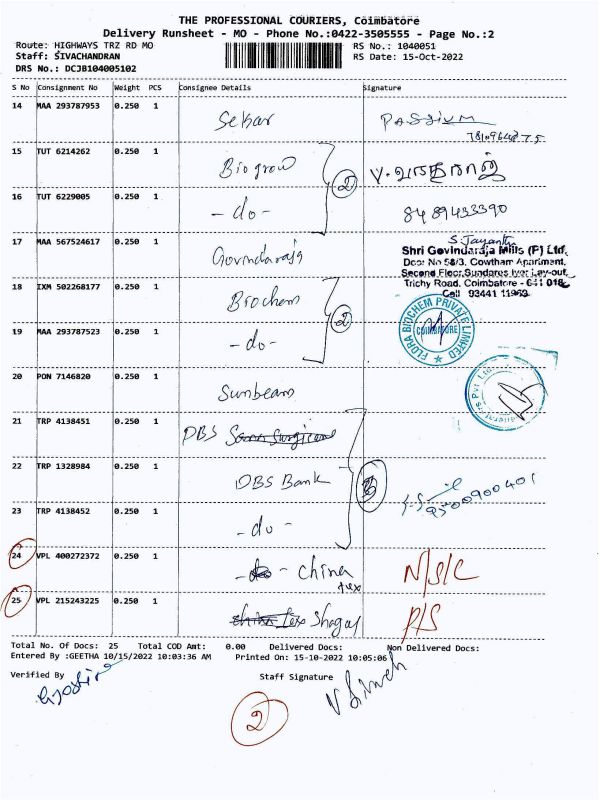 THE PROFESSIONAL COURIERS, Coimbatore
Delivery Runsheet - MO - Phone No.:0422-3505555 - Page No.:2
Route: HIGHWAYS TRZ RD MO RS No.: 1040051
Staff: SIVACHANDRAN RS Date: 15-Oct-2022
DRS No.: DCJB104005102
S No Consignment No Weight PCS Consignee Details Signature
14 MAA 293787953 0.250 1 Sekar
15 TUT 6214262 0.250 1 Biogrow
2
16 TUT 6229005 0.250 1 - do - 8489433390
17 MAA 567524617 0.250 1 Govindaraja S. Jayanthi
Shri Govindaraja Mills (P) Ltd.
Door No 58/3, Gowtham Apartment,
Second Floor,
Trichy Road, Coimbatore - 641 018.
Cell 93441 11963
18 IXM 502268177 0.250 1 Biochem
2
FLORA BIOCHEM PRIVATE LIMITED
COIMBATORE
19 MAA 293787523 0.250 1 - do -
20 PON 7146820 0.250 1 Sunbeam
Pvt Ltd
21 TRP 4138451 0.250 1 DBS
22 TRP 1328984 0.250 1 DBS Bank
9500900401
23 TRP 4138452 0.250 1 - do -
24 VPL 400272372 0.250 1 - do - China tex N/S/C
25 VPL 215243225 0.250 1 China tex P/S
Total No. Of Docs: 25 Total COD Amt: 0.00 Delivered Docs: Non Delivered Docs:
Entered By :GEETHA 10/15/2022 10:03:36 AM Printed On: 15-10-2022 10:05:06
Verified By Staff Signature
2